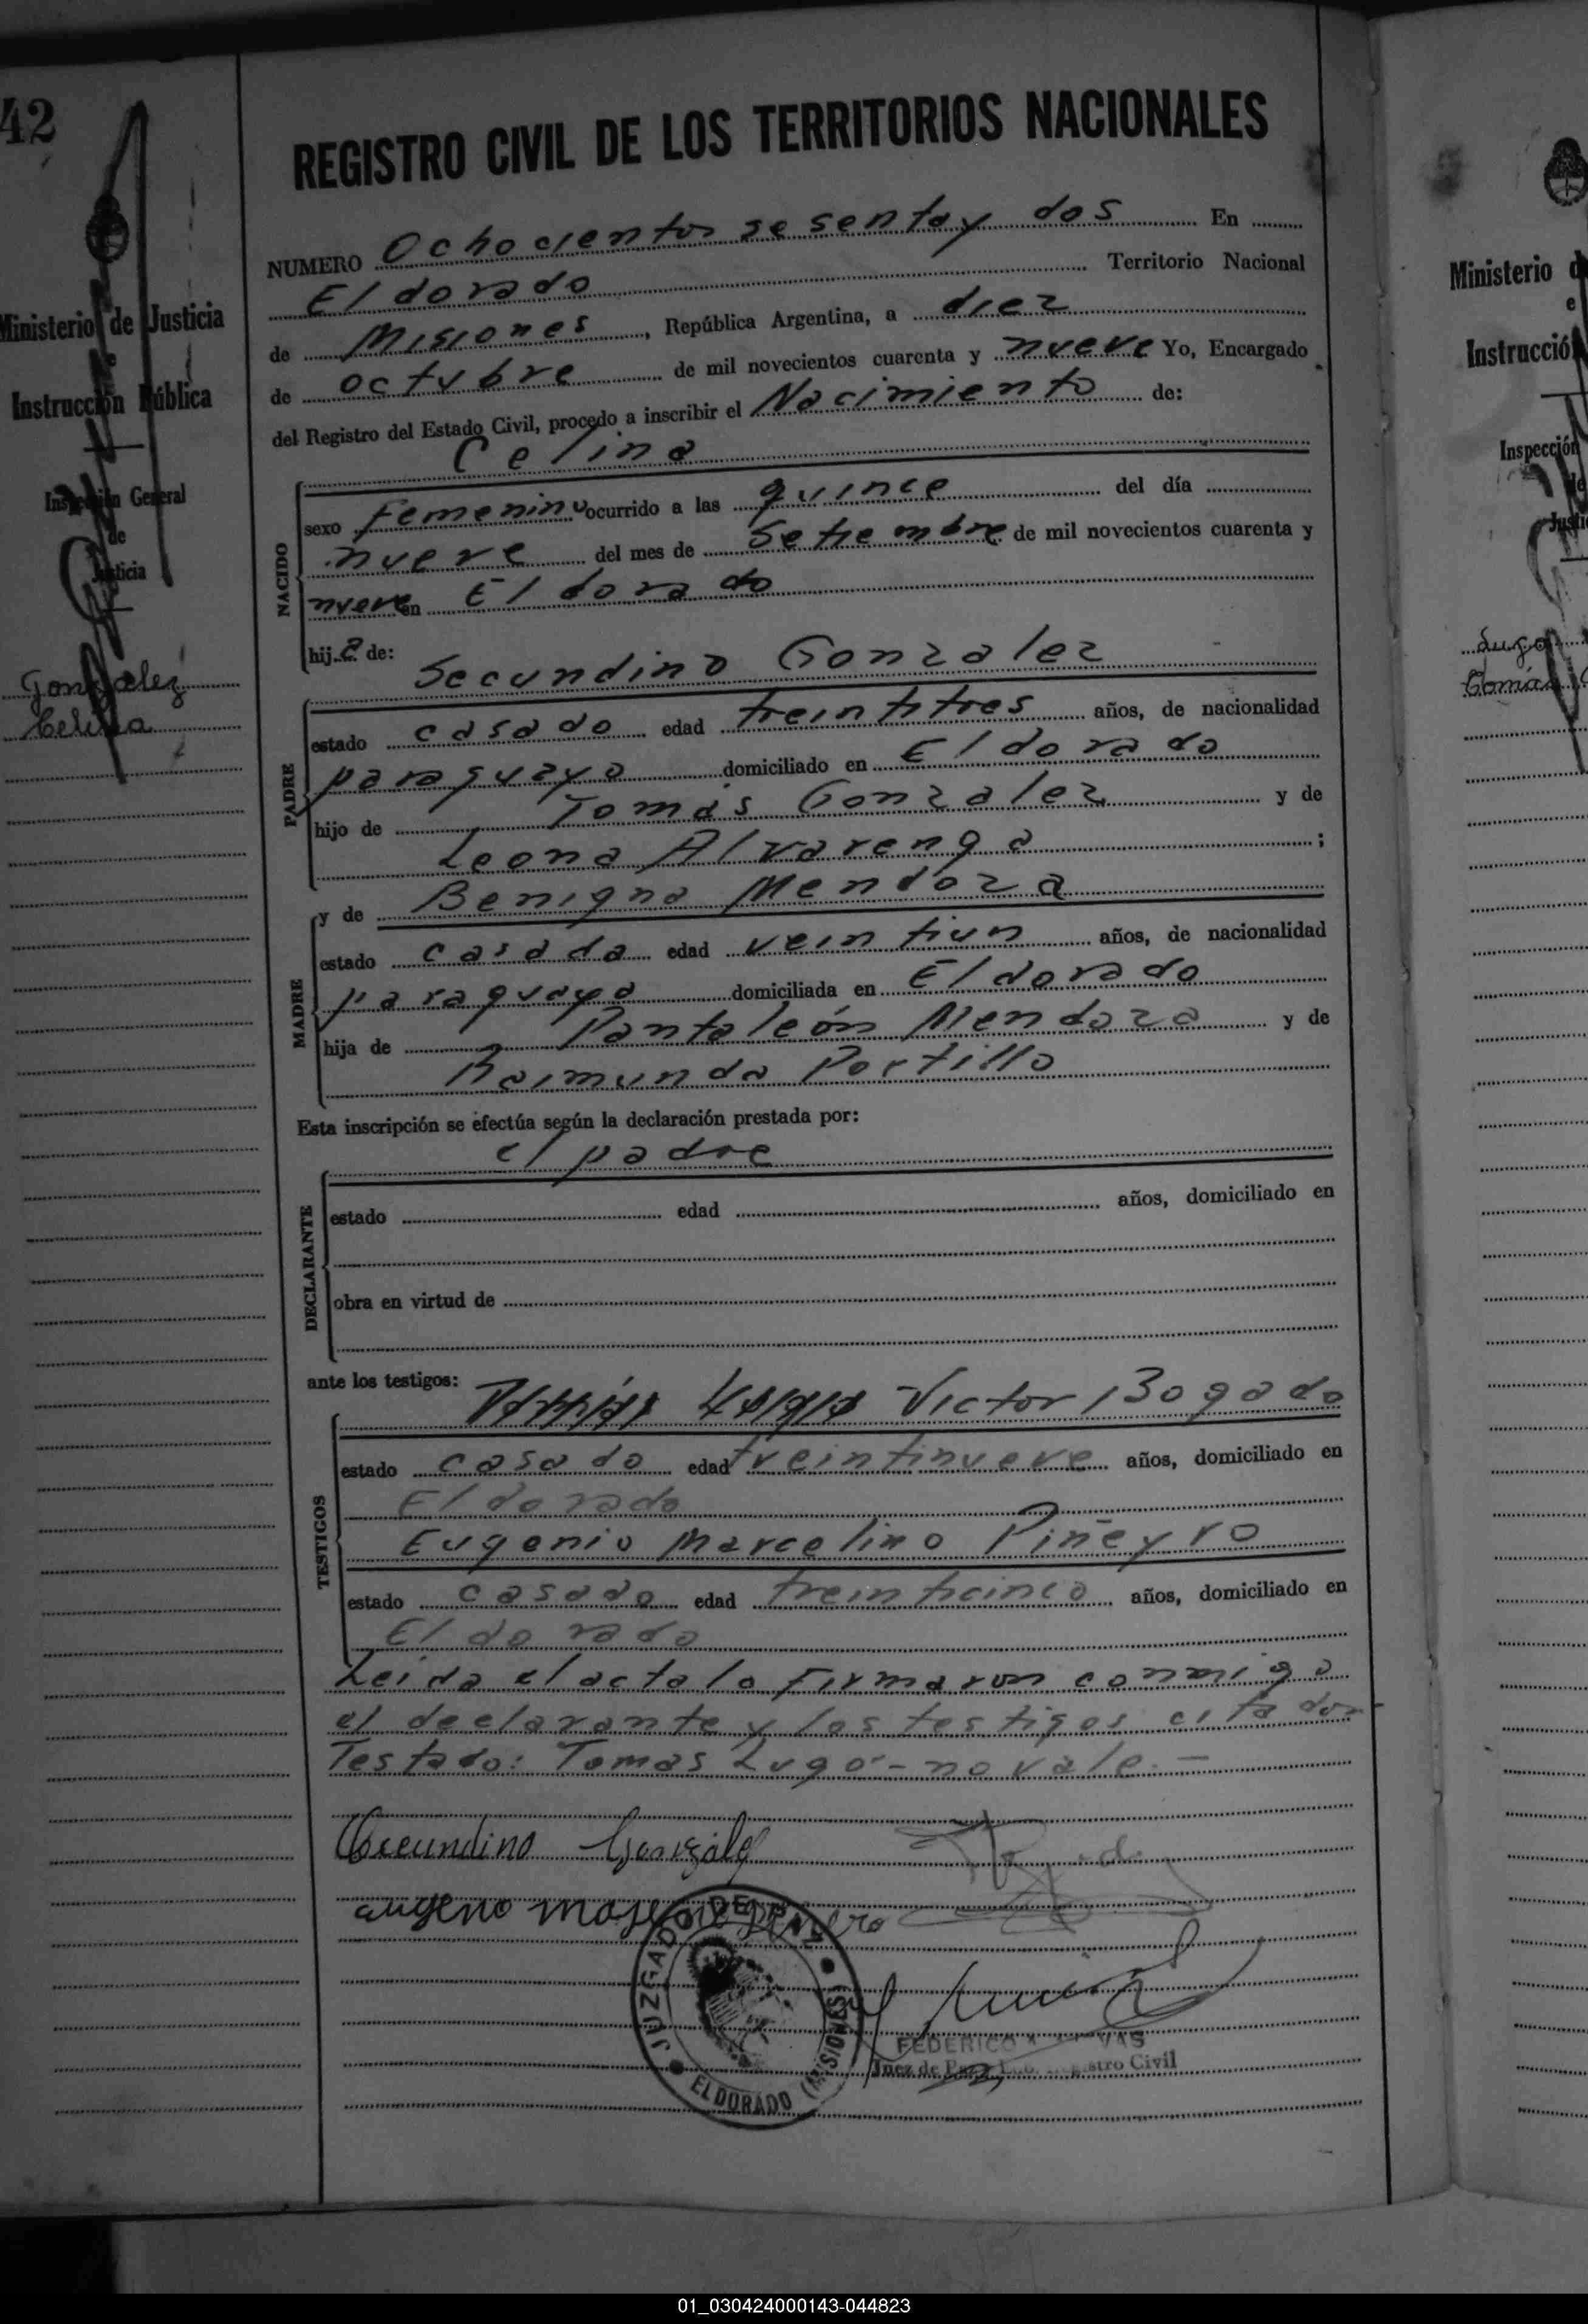 42
Ministerio de Justicia
e
Instrucción Pública
Inspección General
de
Justicia
González
Celina
REGISTRO CIVIL DE LOS TERRITORIOS NACIONALES
NUMERO Ochocientos sesenta y dos En
Eldorado Territorio Nacional
de Misiones, República Argentina, a diez
de octubre de mil novecientos cuarenta y nueve Yo, Encargado
del Registro del Estado Civil, procedo a inscribir el Nacimiento de:
Celina
NACIDO
sexo femenino ocurrido a las quince del día
nueve del mes de Setiembre de mil novecientos cuarenta y
nueve en Eldorado
hija de:
Secundino Gonzalez
PADRE
estado casado edad treintitres años, de nacionalidad
paraguayo domiciliado en Eldorado
hijo de Tomás Gonzalez y de
Leona Alvarenga ;
y de Benigna Mendoza
MADRE
estado casada edad veintiun años, de nacionalidad
paraguaya domiciliada en Eldorado
hija de Pantaleón Mendoza y de
Raimunda Portillo
Esta inscripción se efectúa según la declaración prestada por:
el padre
DECLARANTE
estado edad años, domiciliado en
obra en virtud de
ante los testigos:
Victor Bogado
TESTIGOS
estado casado edad treintinueve años, domiciliado en
Eldorado
Eugenio Marcelino Piñeyro
estado casado edad treinticinco años, domiciliado en
Eldorado
Leida el acta la firmaron conmigo
el declarante y los testigos citados
Testado: Tomas Lugo - no vale.-
Secundino Gonzále
eugeno
JUZGADO DE PAZ
ELDORADO (MISIONES)
FEDERICO
Juez de Paz Registro Civil
Ministerio d
e
Instrucció
Inspección
de
Justi
Lugo
Tomás
01_030424000143-044823